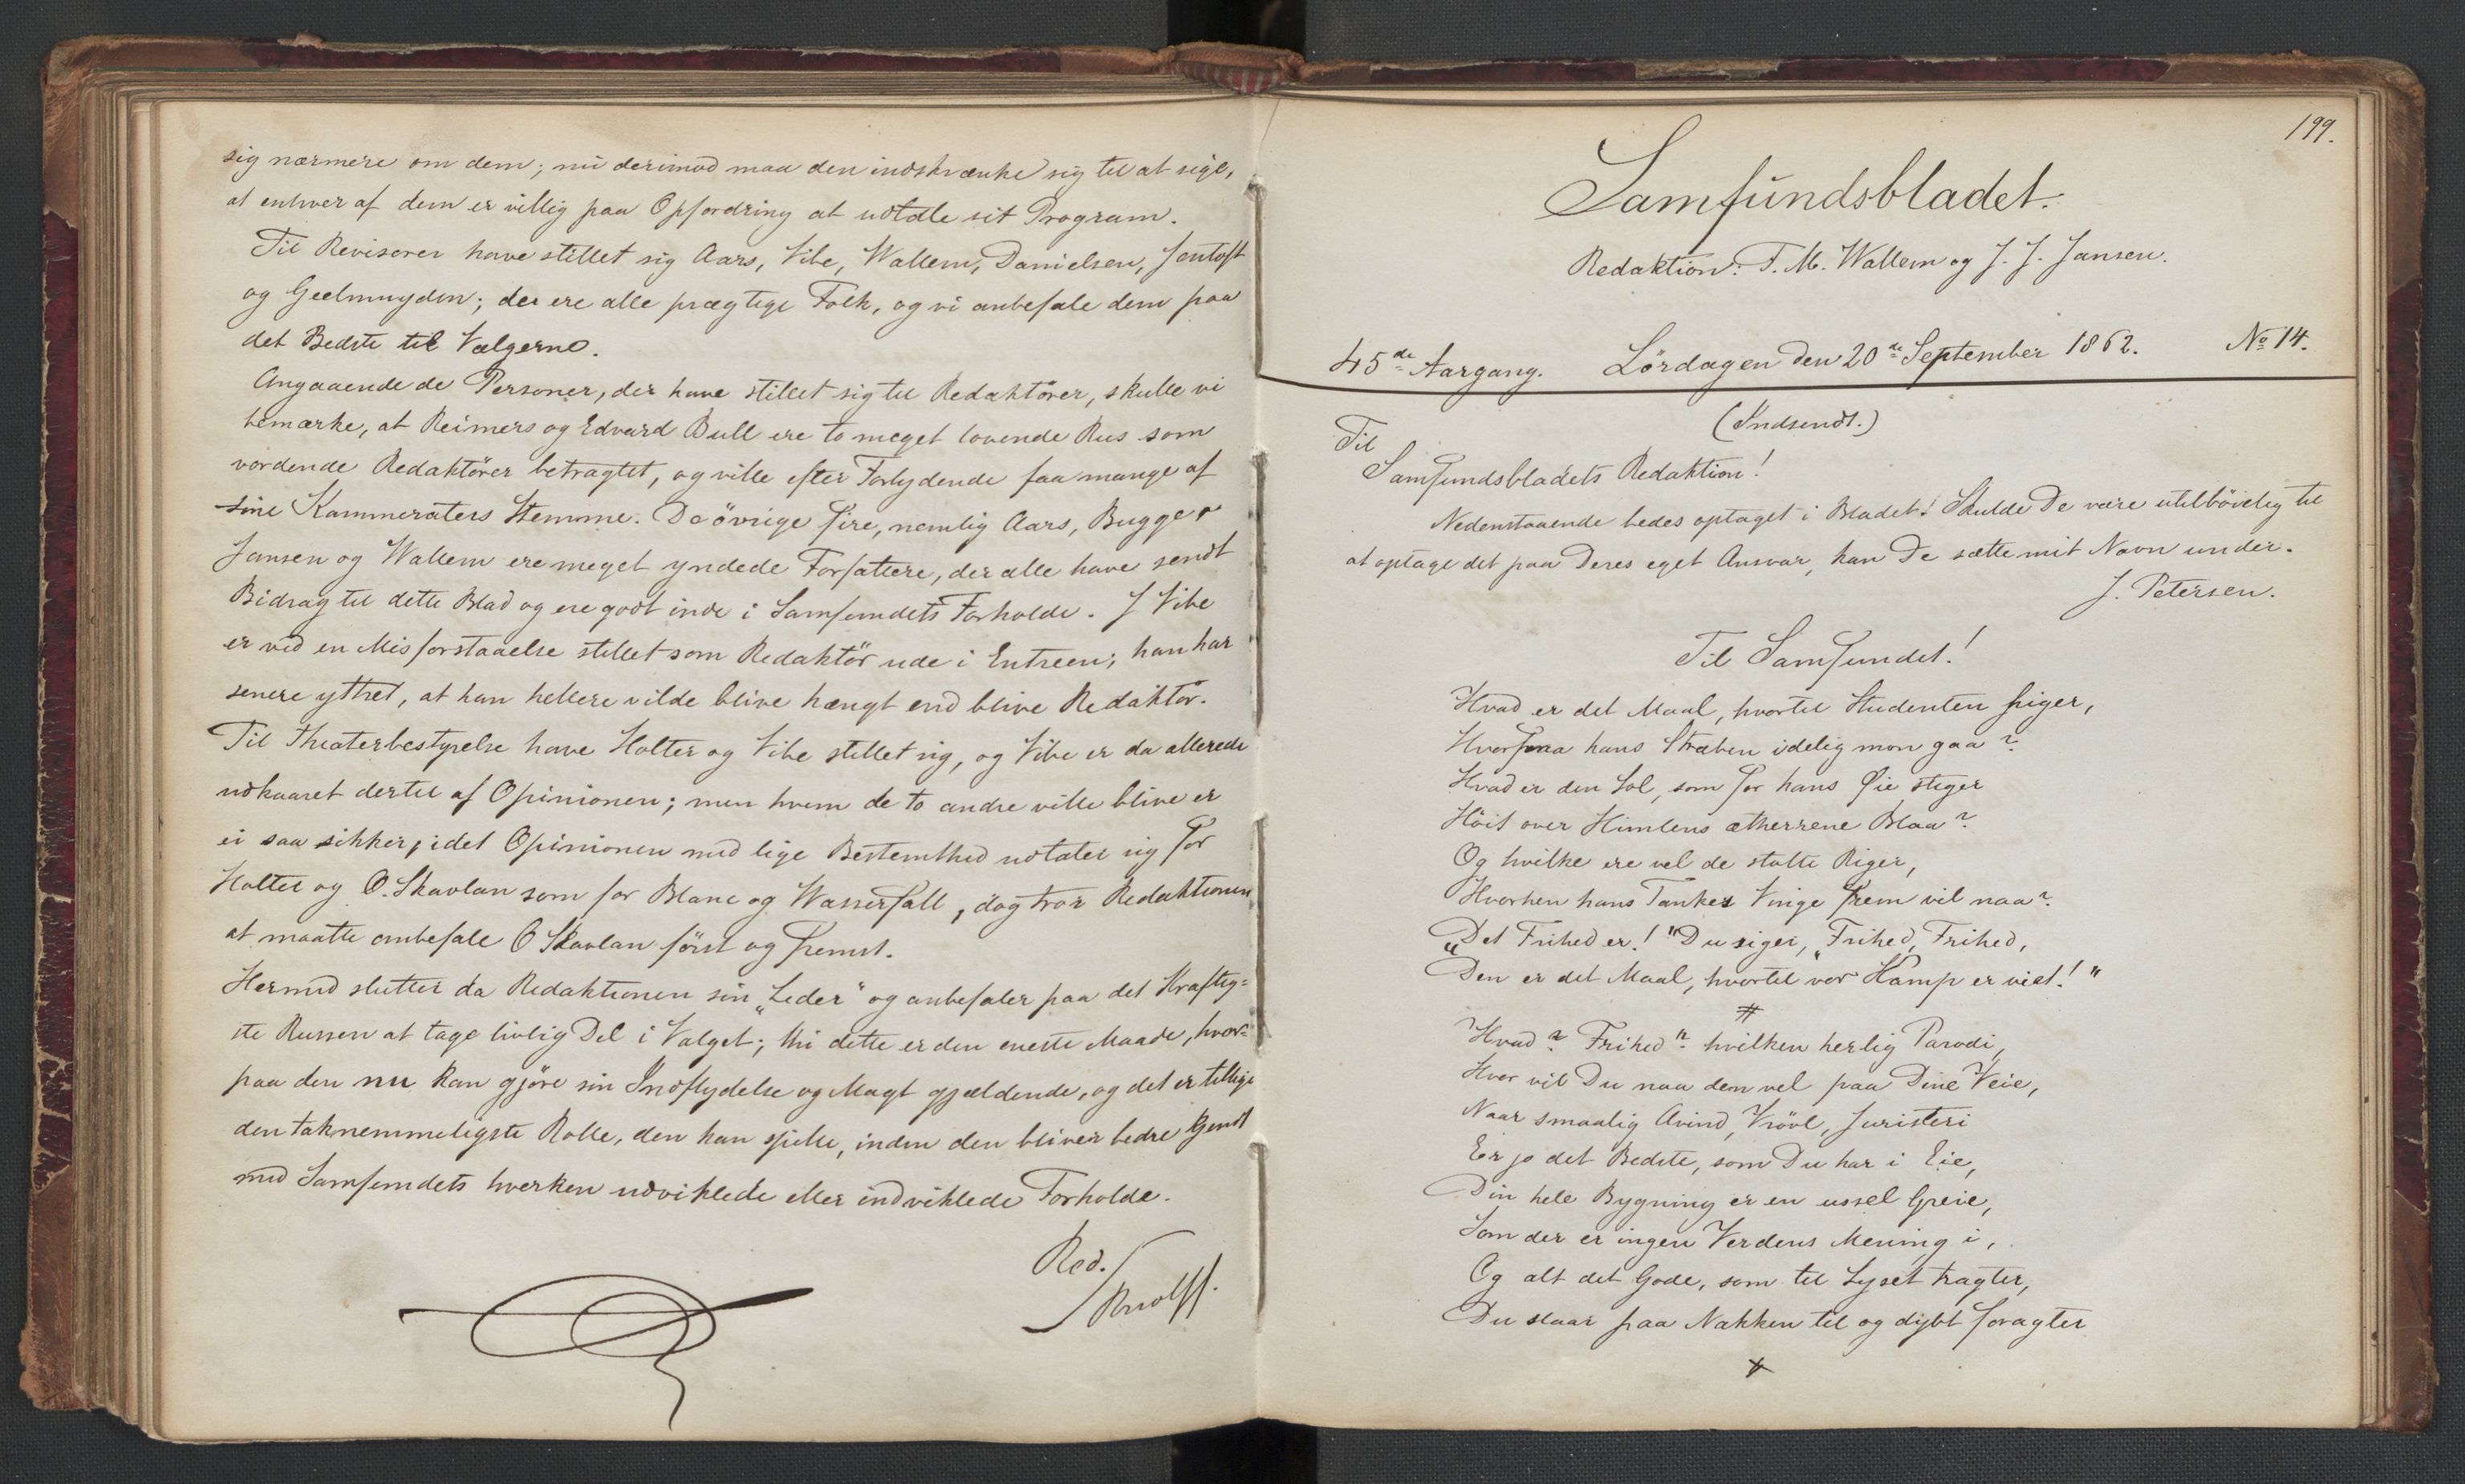 sig nærmere om dem; nu derimod maa den indskrænke sig til at sige,
at enhver af dem er villig paa Opfordring at udtale sit Program.
Til Revisorer have stillet sig Aars, Vibe, Wallem, Danielsen, Jentoft
og Geelmuyden; der ere alle prægtige Folk, og vi anbefale dem paa
det Bedste til Vælgerne.
Angaaende de Personer, der have stillet sig til Redaktörer, skulle vi
bemærke, at Reimers og Edvard Bull ere to meget lovende Rus som
vordende Redaktörer betragtet, og ville efter Forlydende faa mange af
sine Kammeraters Stemme. De övrige fire, nemlig Aars, Bugge,
Jansen og Wallem ere meget yndede Forfattere, der alle have sendt
Bidrag til dette Blad og ere godt inde i Samfundets Forholde. J Vibe
er ved en Misforstaaelse stillet som Redaktör ude i Entreen; han har
senere yttret, at han hellere vilde blive hængt end blive Redaktör.
Til Theaterbestyrelse have Holter og Vibe stillet sig, og Vibe er da allerede
udkaaret dertil af Opinionen; men hvem de to andre ville blive er
ei saa sikker, idet Opinionen med lige Bestemthed udtaler sig for
Holter og O. Skavlan som for Blanc og Wasserfall, dog tror Redaktionen
at maatte anbefale O Skavlan först og fremst.
Hermed slutter da Redaktionen sin „Leder" og anbefaler paa det Kraftig=
ste Russen at tage livlig Del i Valget; thi dette er den eneste Maade, hvor=
paa den nu kan gjöre sin Indflydelse og Magt gjældende, og det er tillige
den taknemmeligste Rolle, den kan spille, inden den bliver bedre kjendt
med Samfundets hverken udviklede eller indviklede Forholde.
Red.
199.
Samfundsbladet.
Redaktion: F. M. Wallem og J. J. Jansen.
45de Aargang. Lördagen den 20de September 1862. No 14.
(Indsendt.)
Til
Samfundsbladets Redaktion!
Nedenstaaende bedes optaget i Bladet! Skulde De være utilböielig til
at optage det paa Deres eget Ansvar, kan De sætte mit Navn under.
J. Petersen.
Til Samfundet!
Hvad er det Maal, hvortil Studenten higer,
Hvorpaa hans Stræben idelig mon gaa?
Hvad er den Sol, som for hans Øie stiger
Höit over Himlens ætherrene Blaa?
Og hvilke ere vel de stolte Riger,
Hvorhen hans Tankes Vinge frem vil naa?
„Det Frihed er!" Du siger, „Frihed, Frihed,
Den er det Maal, hvortil vor Kamp er viet!"
#
Hvad? Frihed? hvilken herlig Parodi,
Hvor vil Du naa den vel paa Dine Veie,
Naar smaalig Avind, Vrövl, Juristeri
Er jo det Bedste, som Du har i Eie,
Din hele Bygning er en ussel Greie,
Som der er ingen Verdens Mening i,
Og alt det Gode, som til Lyset tragter,
Du slaar paa Nakken til og dybt foragter